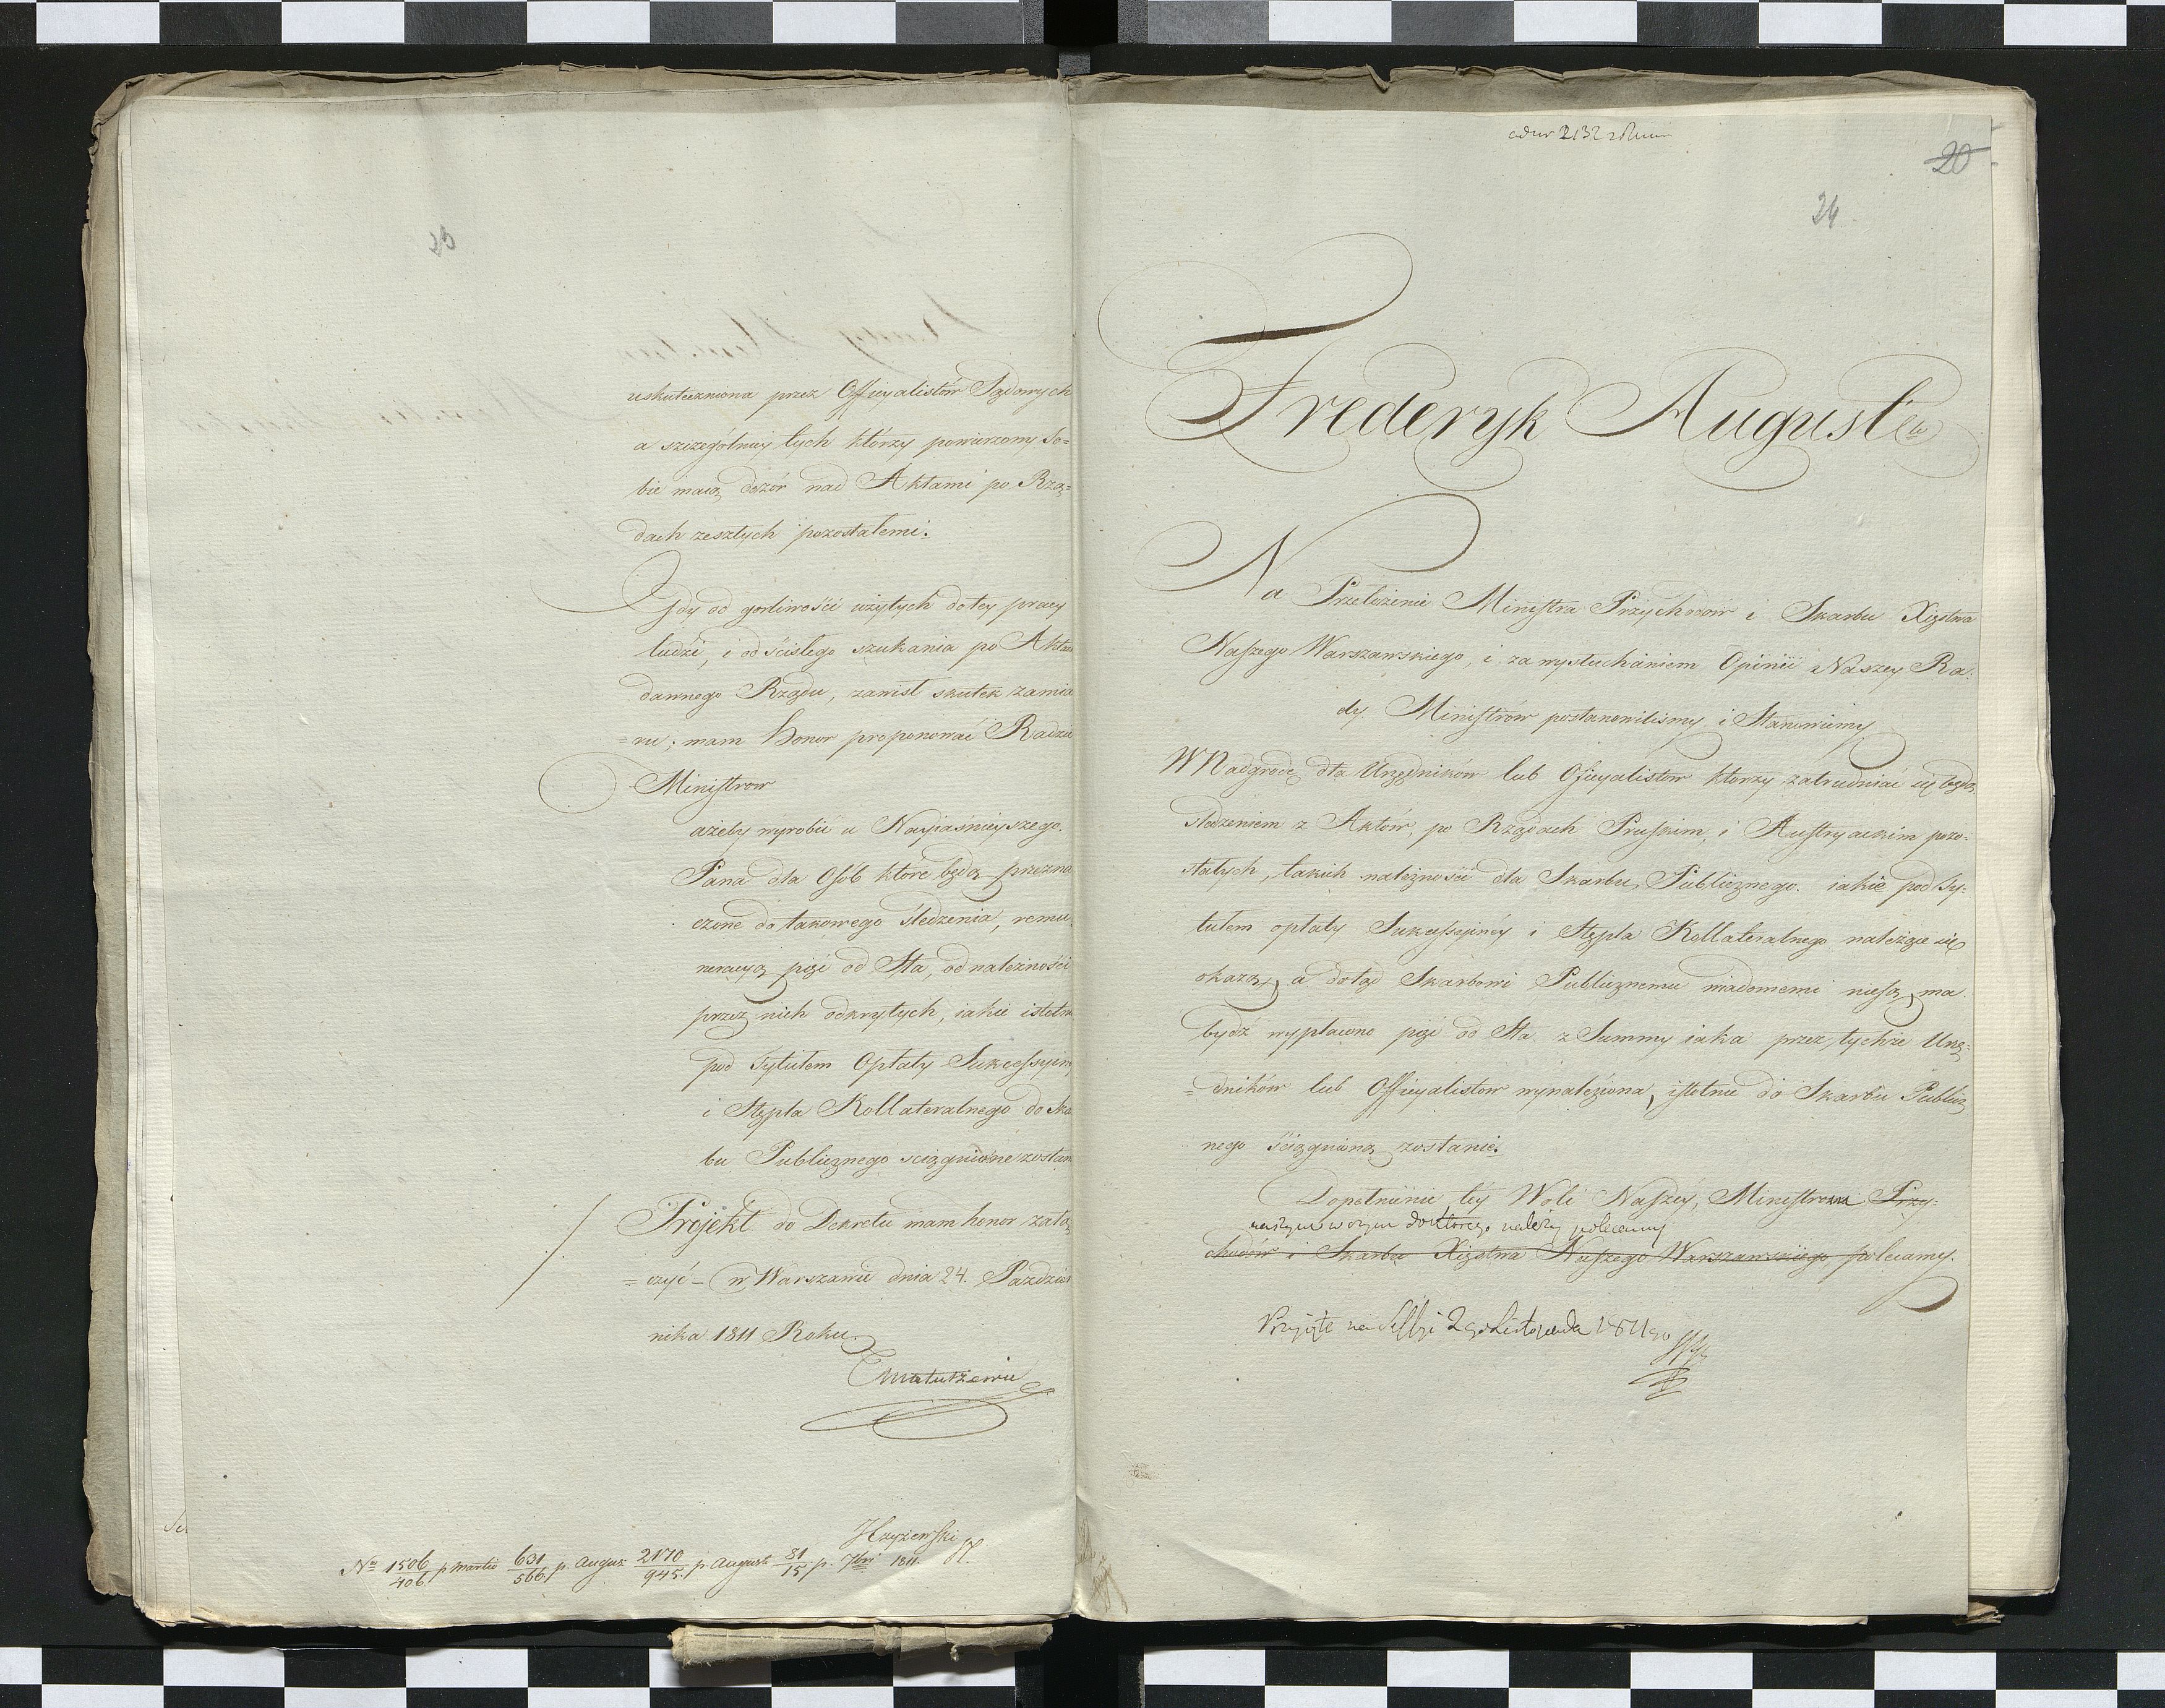 23
uskuteczniona przez Officyalistów Sądowych
a szczególniey tych którzy powierzony so=
bie maią dozór nad Aktami po Rzą=
dach zeszłych pozostałemi.
Gdy od gorliwości użytych do tey pracy
ludzi, i od ścisłego szukania po Aktach
dawnego Rządu, zawisł skutek zamia
=ru; mam honor proponować Radzie
Ministrow
ażeby wyrobić u Nayiaśnieyszego
Pana dla Osób które będą przezna
czone do takowego śledzenia, remu
neracyą pięć od Sta, od należności
przez nich odkrytych, iakie istotnie
pod Tytułem Opłaty Sukcessyiney
i Stępla Kollateralnego do Skar
bu Publicznego sciągnione zostaną
Projekt do Dekretu mam honor załą
=czyć – w Warszawie dnia 24. Paździer
nika 1811 Roku.
Matuszewic
Krzyżewski
No 1506/406 p Martii 631/566 p. August 2170/945. p. Augusti 81/15 p. 7bri 1811.
2132
20
24
Frederyk August etc
Na Przełożenie Ministra Przychodów i Skarbu Xięstwa
Naszego Warszawskiego, i za wysłuchaniem Opinii Naszey Ra:
dy Ministrów postanowiliśmy i Stanowiemy
W Nadgrodę dla Urzędników lub Oficyalistow ktorzy zatrudniać się będą
śledzeniem z Aktów, po Rządach Pruskim, i Austryackim pozo-
stałych, takich należności dla Skarbu Publicznego. iakie pod Ty:
tułem opłaty Sukcessyiney i Stępla Kollateralnego należące się
okażą, a dotąd Skarbowi Publicznemu wiadomemi niesą, ma
bydź wypłacone pięć od Sta z Summy iaka przez tychże Urzę=
=dników lub Officyalistow wynaleziona, istotnie do Skarbu Publicz
nego ściągnioną zostanie.
Dopełnienie tey Woli Naszey, Ministrowi Przy:
naszym w czym do ktorego należy polecamy
chodów i Skarbu Xięstwa Naszego Warszawskiego polecamy.
Przyięte na Sessyi 2go Listopada 1811go